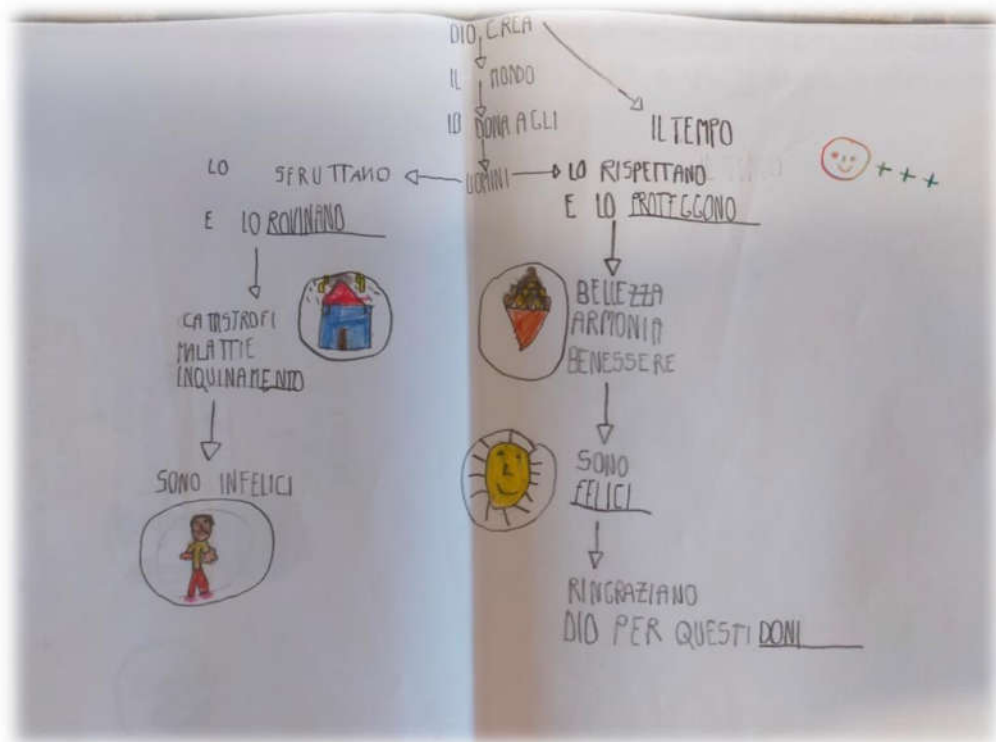 DIO CREA
IL MONDO
LO DONA AGLI
UOMINI
IL TEMPO
LO SFRUTTANO
E LO ROVINANO
CATASTROFI
MALATTIE
INQUINAMENTO
SONO INFELICI
LO RISPETTANO
E LO PROTEGGONO
BELLEZZA
ARMONIA
BENESSERE
SONO
FELICI
RINGRAZIANO
DIO PER QUESTI DONI
+ + +